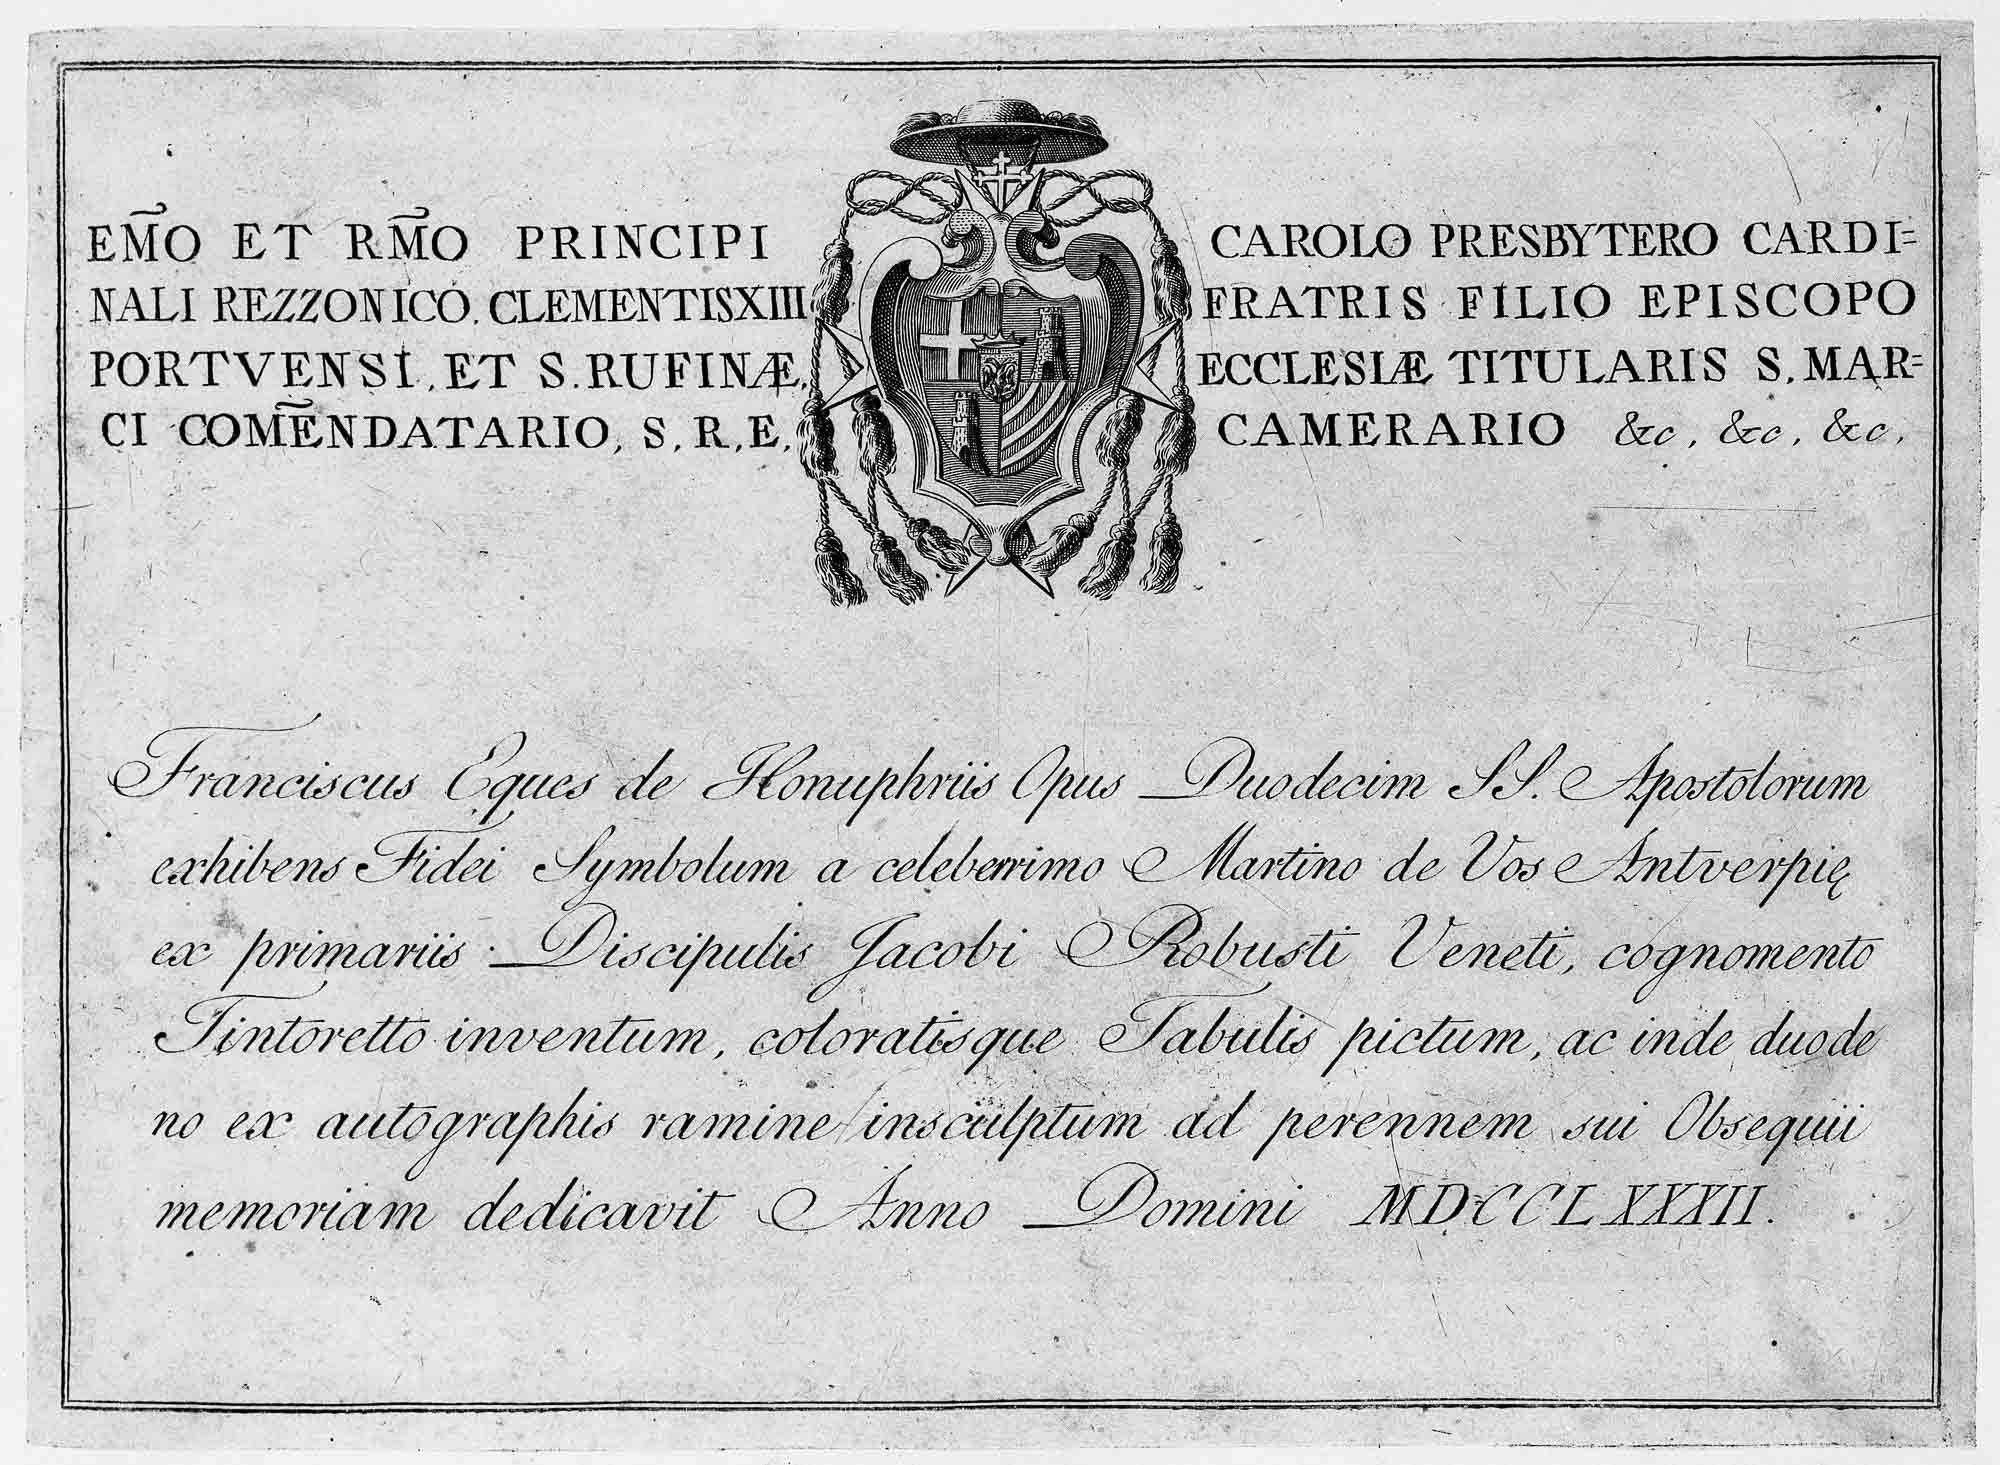 EM̄O ET RM̄O PRINCIPI CAROLO PRESBYTERO CARDI=
NALI REZZONICO. CLEMENTIS XIII FRATRIS FILIO EPISCOPO
PORTVENSI, ET S. RUFINÆ, ECCLESIÆ TITULARIS S. MAR=
CI COM̄ENDATARIO, S. R. E. CAMERARIO &c, &c, &c,
Franciscus Eques de Honuphriis Opus Duodecim SS. Apostolorum
exhibens Fidei Symbolum a celeberrimo Martino de Vos Antverpię
ex primariis Discipulis Jacobi Robusti Veneti, cognomento
Tintoretto inventum, coloratisque Tabulis pictum, ac inde duode
no ex autographis ramine insculptum ad perennem sui Obsequii
memoriam dedicavit Anno Domini MDCCLXXXII.